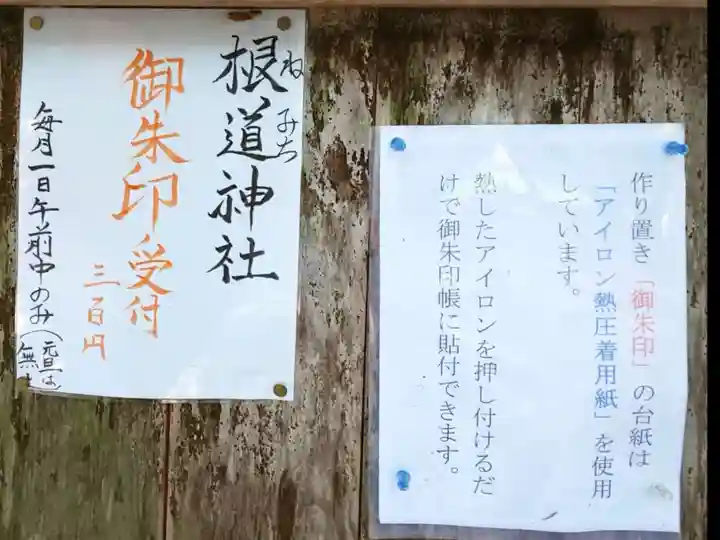 根道神社
ねみち
御朱印受付
三百円
毎月一日午前中のみ(元旦は
無し
作り置き「御朱印」の台紙は
「アイロン熱圧着用紙」を使用
しています。
熱したアイロンを押し付けるだ
けで御朱印帳に貼付できます。